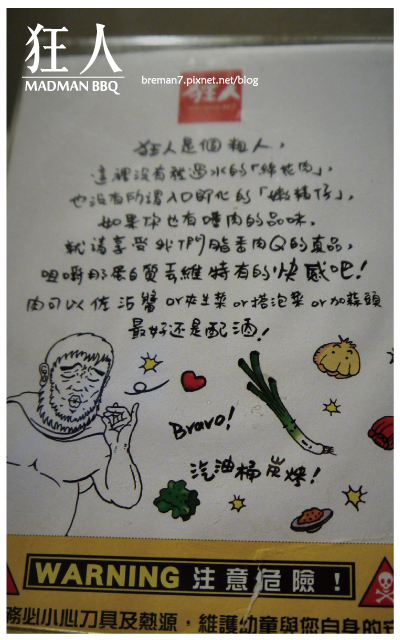 狂人
MADMAN BBQ
breman7.pixnet.net/blog
狂人
狂人是個粗人，
這裡沒有說過水的「綿花肉」，
也沒有所謂入口即化的「嫩精仔」，
如果你也有嗜肉的品味，
就請享受我們脂香肉Q的真品，
咀嚼那蛋白質纖維特有的快感吧！
肉可以佐沾醬or夾生菜or搭泡菜or加蒜頭
最好還是配酒！
Bravo!
汽油桶炭烤！
WARNING 注意危險！
務必小心刀具及熱源，維護幼童與您自身的安